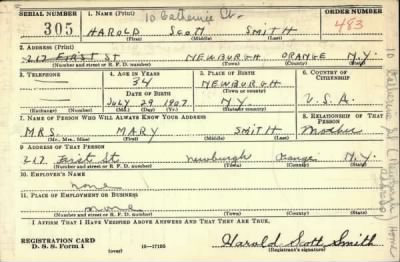 SERIAL NUMBER
1. NAME (Print)
10 Catherine St.
ORDER NUMBER
305
HAROLD SCOTT SMITH
483
(First) (Middle) (Last)
2. ADDRESS (Print)
217 FIRST ST NEWBURGH ORANGE N.Y.
(Number and street or R. F. D. number) (Town) (County) (State)
3. TELEPHONE
4. AGE IN YEARS
34
5. PLACE OF BIRTH
NEWBURGH
6. COUNTRY OF CITIZENSHIP
(Town or county)
DATE OF BIRTH
JULY 29 1907
N.Y.
U.S.A.
(Exchange) (Number)
(Mo.) (Day) (Yr.)
(State or country)
7. NAME OF PERSON WHO WILL ALWAYS KNOW YOUR ADDRESS
8. RELATIONSHIP OF THAT PERSON
MRS. MARY SMITH Mother
(Mr., Mrs., Miss) (First) (Middle) (Last)
9. ADDRESS OF THAT PERSON
217 First St. Newburgh Orange N.Y.
(Number and street or R. F. D. number) (Town) (County) (State)
10. EMPLOYER'S NAME
none
11. PLACE OF EMPLOYMENT OR BUSINESS
none
(Number and street or R. F. D. number) (Town) (County) (State)
I AFFIRM THAT I HAVE VERIFIED ABOVE ANSWERS AND THAT THEY ARE TRUE.
REGISTRATION CARD
D. S. S. Form 1
(over)
16—17105
Harold Scott Smith
(Registrant's signature)